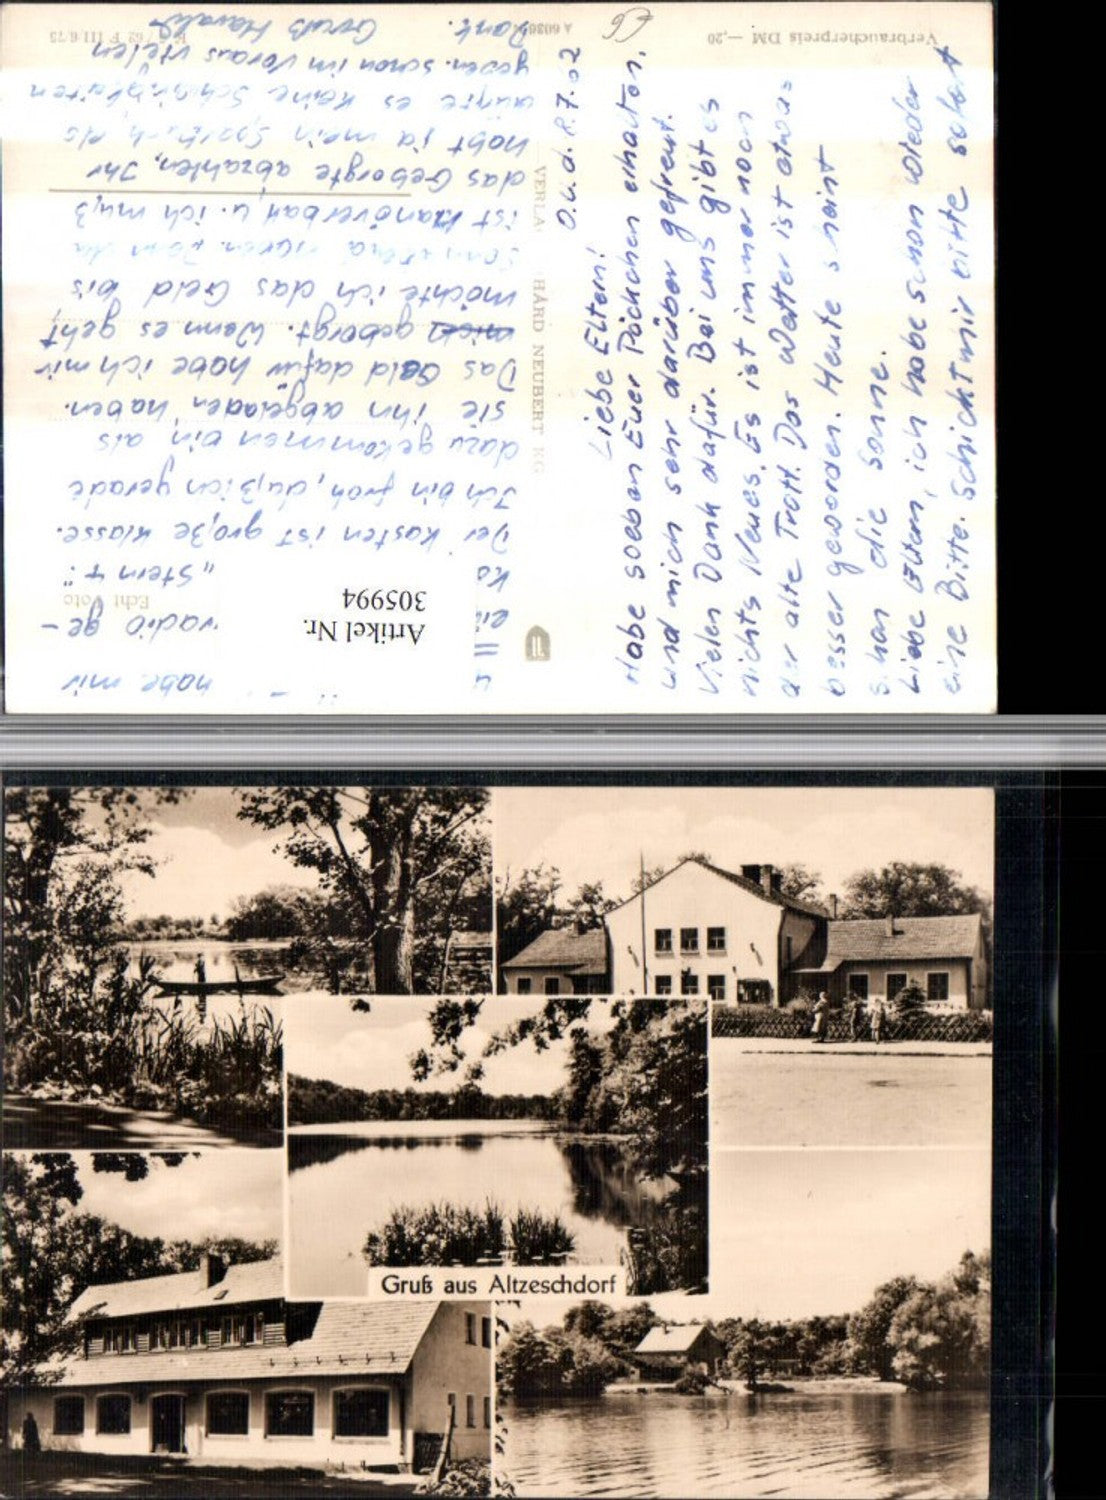 O.U. d. 8.7.62
Liebe Eltern!
Habe soeben Euer Päckchen erhalten.
und mich sehr darüber gefreut.
Vielen Dank dafür. Bei uns gibt es
nichts Neues. Es ist immer noch
der alte Trott. Das Wetter ist etwas
besser geworden. Heute scheint
schon die Sonne.
Liebe Eltern, ich habe schon wieder
eine Bitte. Schickt mir bitte sofort
habe mir
radio ge-
"Stern 4".
Der Kasten ist große Klasse.
Ich bin froh, daß ich gerade
dazu gekommen bin als
sie ihn abgeladen haben.
Das Geld dafür habe ich mir
geborgt. Wenn es geht,
möchte ich das Geld bis
haben. Denn da
ist Manöverball u. ich muß
das Geborgte abzahlen. Ihr
habt ja mein Sparbuch, als
dürfte es keine Schwierigkeiten
geben. Schon im Voraus vielen
Dank. Gruß Harald
Verbraucherpreis DM –,20
VERLAG HARD NEUBERT KG
Echt Foto
Artikel Nr.
305994
Gruß aus Altzeschdorf